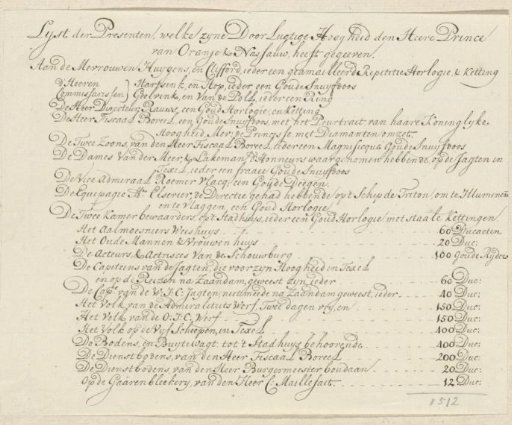 Lyst der Presenten, welke zyne Door Lugtige Hoogheid den Heere Prince
van Oranje & Nassauw, heeft gegeven.
Aan de Mevrouwen Huygens, en Clifford, ieder een geamailleerde Repetitie Horlogie, & Ketting
d'Heeren Harfsen &, en Hop, ieder een Goude Snuifdoos
Commissarissen Goelvink, en Van de Poll, ieder een Ring
De Heer Directeur Rauws, een Goud Horlogie, en Ketting
De Heer Fiscaal Boreel, een Goude Snuifdoos, met het Pourtrait van haare Koninglyke
Hoogheid, Mev: de Princes, se met Diamanten omzet.
De Twee Zoons, van den Heer Fiscaal Boreel, ieder een Magnificque Goude Snuifdoos
De Dames Van der Meer, & Lakeman, d'Honneurs waargenomen hebbende, op de Jagten en
Texel, ieder een fraaie Goude Snuifdoos
De Vice Admiraal Roemer Vlacq, een Goude Deegen
De Equipagie Mr Elsevier, de Directie gehad hebbende, op't Schip de Triton, om te Illumineren
en te Vlaggen, een Goud Horlogie
De Twee Kamerbewaarders, op't Stadhuys, ieder een Goud Horlogie, met staale Kettingen
Het Aalmoesniers Weeshuys 60 Ducaeten
Het Oude Mannen & Vrouwen huys 20 Duc:
De Acteurs & Actrises Van de Schouwburg 100 Goude Ryders
De Capiteins van de Jagten, die voor zyn Hoogheid in Texel
en op de Reizen na Zaandam geweest zyn, ieder 60 Duc:
De Capt: van de W: I: C: Jagten, nu en mede na Zaandam geweest, ieder 40 Duc:
Het Volk van de Admiraliteits Werf, Twee dagen vry, en 150 Duc:
Het Volk van de O: I: C: Werf 150 Duc:
Het Volk op de Vyf Scheepen, in Texel 400 Duc:
De Bodens, en Buyte Wagt, tot 't Stadhuys behoorende 400 Duc:
De Dienstbodens, van den Heer Fiscaal Boreel 200 Duc:
De Dienstbodens van den Heer Burgermeester Boudaan 20 Duc:
Op de Gaaren bleekery, van den Heer C: Maillefait 12 Duc:
1512